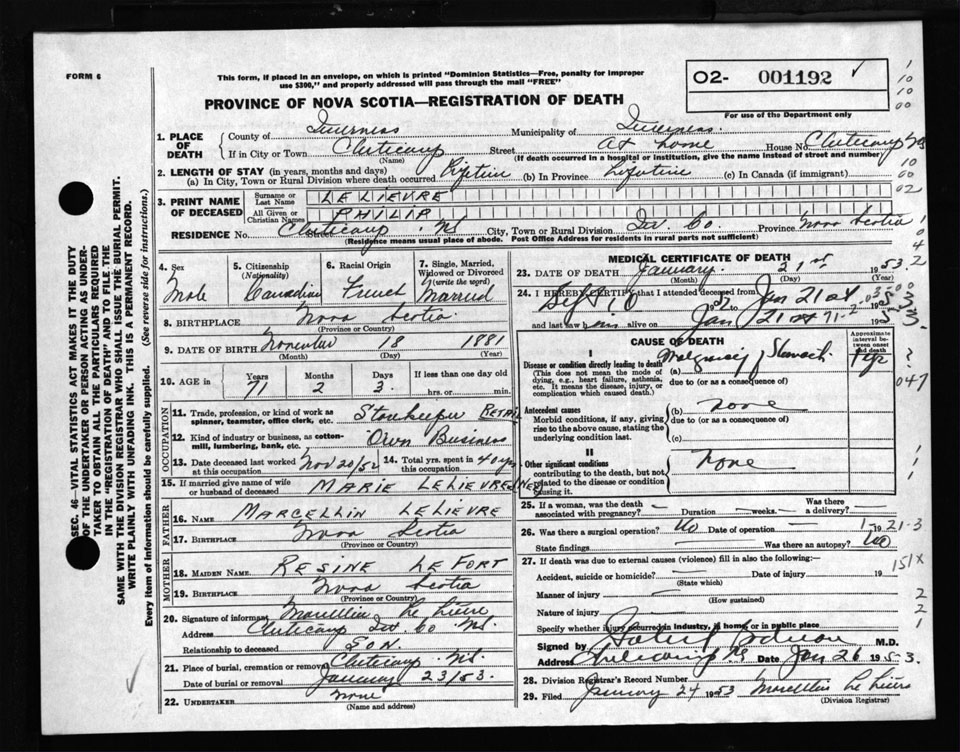 FORM 6
This form, if placed in an envelope, on which is printed "Dominion Statistics—Free, penalty for improper use $300," and properly addressed will pass through the mail "FREE"
O2- 001192
For use of the Department only
PROVINCE OF NOVA SCOTIA—REGISTRATION OF DEATH
1. PLACE OF DEATH County of Inverness Municipality of Inverness.
If in City or Town Cheticamp Street At home House No. Cheticamp NS
(Name) (If death occurred in a hospital or institution, give the name instead of street and number)
2. LENGTH OF STAY (in years, months and days)
(a) In City, Town or Rural Division where death occurred Lifetime (b) In Province Lifetime (c) In Canada (if immigrant)
3. PRINT NAME OF DECEASED Surname or Last Name LELIEVRE
All Given or Christian Names PHILIP
RESIDENCE No. Cheticamp NS Street City, Town or Rural Division Inv. Co. Province Nova Scotia
(Residence means usual place of abode. Post Office Address for residents in rural parts not sufficient)
4. Sex Male
5. Citizenship (Nationality) Canadian
6. Racial Origin French
7. Single, Married, Widowed or Divorced (write the word) Married
8. BIRTHPLACE Nova Scotia
(Province or Country)
9. DATE OF BIRTH November 18 1881
(Month) (Day) (Year)
10. AGE in Years Months Days If less than one day
71 2 3 hrs. or min.
OCCUPATION
11. Trade, profession, or kind of work as spinner, teamster, office clerk, etc. Storekeeper RETAIL
12. Kind of industry or business, as cotton-mill, lumbering, bank, etc. Own Business
13. Date deceased last worked at this occupation Nov 20/52 14. Total yrs. spent in this occupation 40 yrs
15. If married give name of wife or husband of deceased MARIE LELIEVRE
FATHER
16. NAME MARCELLIN LELIEVRE
17. BIRTHPLACE Nova Scotia
(Province or Country)
MOTHER
18. MAIDEN NAME RESINE LEFORT
19. BIRTHPLACE Nova Scotia
(Province or Country)
20. Signature of informant Marcellin Le Lievre
Address Cheticamp Inv Co NS.
Relationship to deceased SON
21. Place of burial, cremation or removal Cheticamp NS.
Date of burial or removal January 23/53.
22. UNDERTAKER None
(Name and address)
MEDICAL CERTIFICATE OF DEATH
23. DATE OF DEATH January 21st 1953.
(Month) (Day) (Year)
24. I HEREBY CERTIFY that I attended deceased from
Sept 10 1952 Jan 21st 1953
and last saw him alive on Jan 21st 1953.
CAUSE OF DEATH
Approximate interval between onset and death
I
Disease or condition directly leading to death (a) Malignancy Stomach 1 yr
(This does not mean the mode of dying, e.g., heart failure, asthenia, etc. It means the disease, injury, or complication which caused death.)
due to (or as a consequence of)
Antecedent causes (b) none
Morbid conditions, if any, giving rise to the above cause, stating the underlying condition last.
due to (or as a consequence of)
(c)
II
Other significant conditions none
contributing to the death, but not related to the disease or condition causing it.
25. If a woman, was the death associated with pregnancy? — Duration —weeks.— Was there a delivery? —
26. Was there a surgical operation? No Date of operation — 19
State findings — Was there an autopsy? No
27. If death was due to external causes (violence) fill in also the following:—
Accident, suicide or homicide? — Date of injury 19
(State which)
Manner of injury —
(How sustained)
Nature of injury —
Specify whether injury occurred in industry, in home or in public place
Signed by M.D.
Address Cheticamp NS Date Jan 26 1953.
28. Division Registrar's Record Number
29. Filed January 24 1953 Marcellin Le Lievre
(Division Registrar)
SEC. 46 VITAL STATISTICS ACT MAKES IT THE DUTY
OF THE UNDERTAKER OR PERSON ACTING AS UNDER-
TAKER TO OBTAIN ALL THE PARTICULARS REQUIRED
IN THE "REGISTRATION OF DEATH" AND TO FILE THE
SAME WITH THE DIVISION REGISTRAR WHO SHALL ISSUE THE BURIAL PERMIT.
WRITE PLAINLY WITH UNFADING INK. THIS IS A PERMANENT RECORD.
Every item of information should be carefully supplied. (See reverse side for instructions.)
047
151X